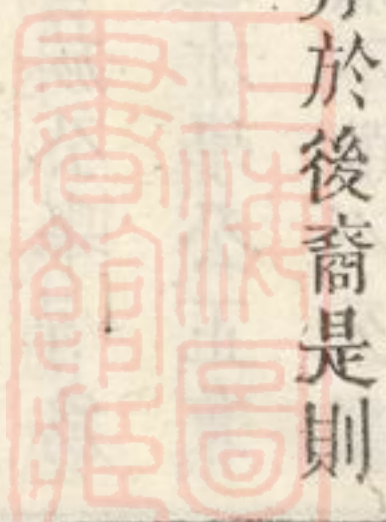 於後裔是則
上海圖
書館藏